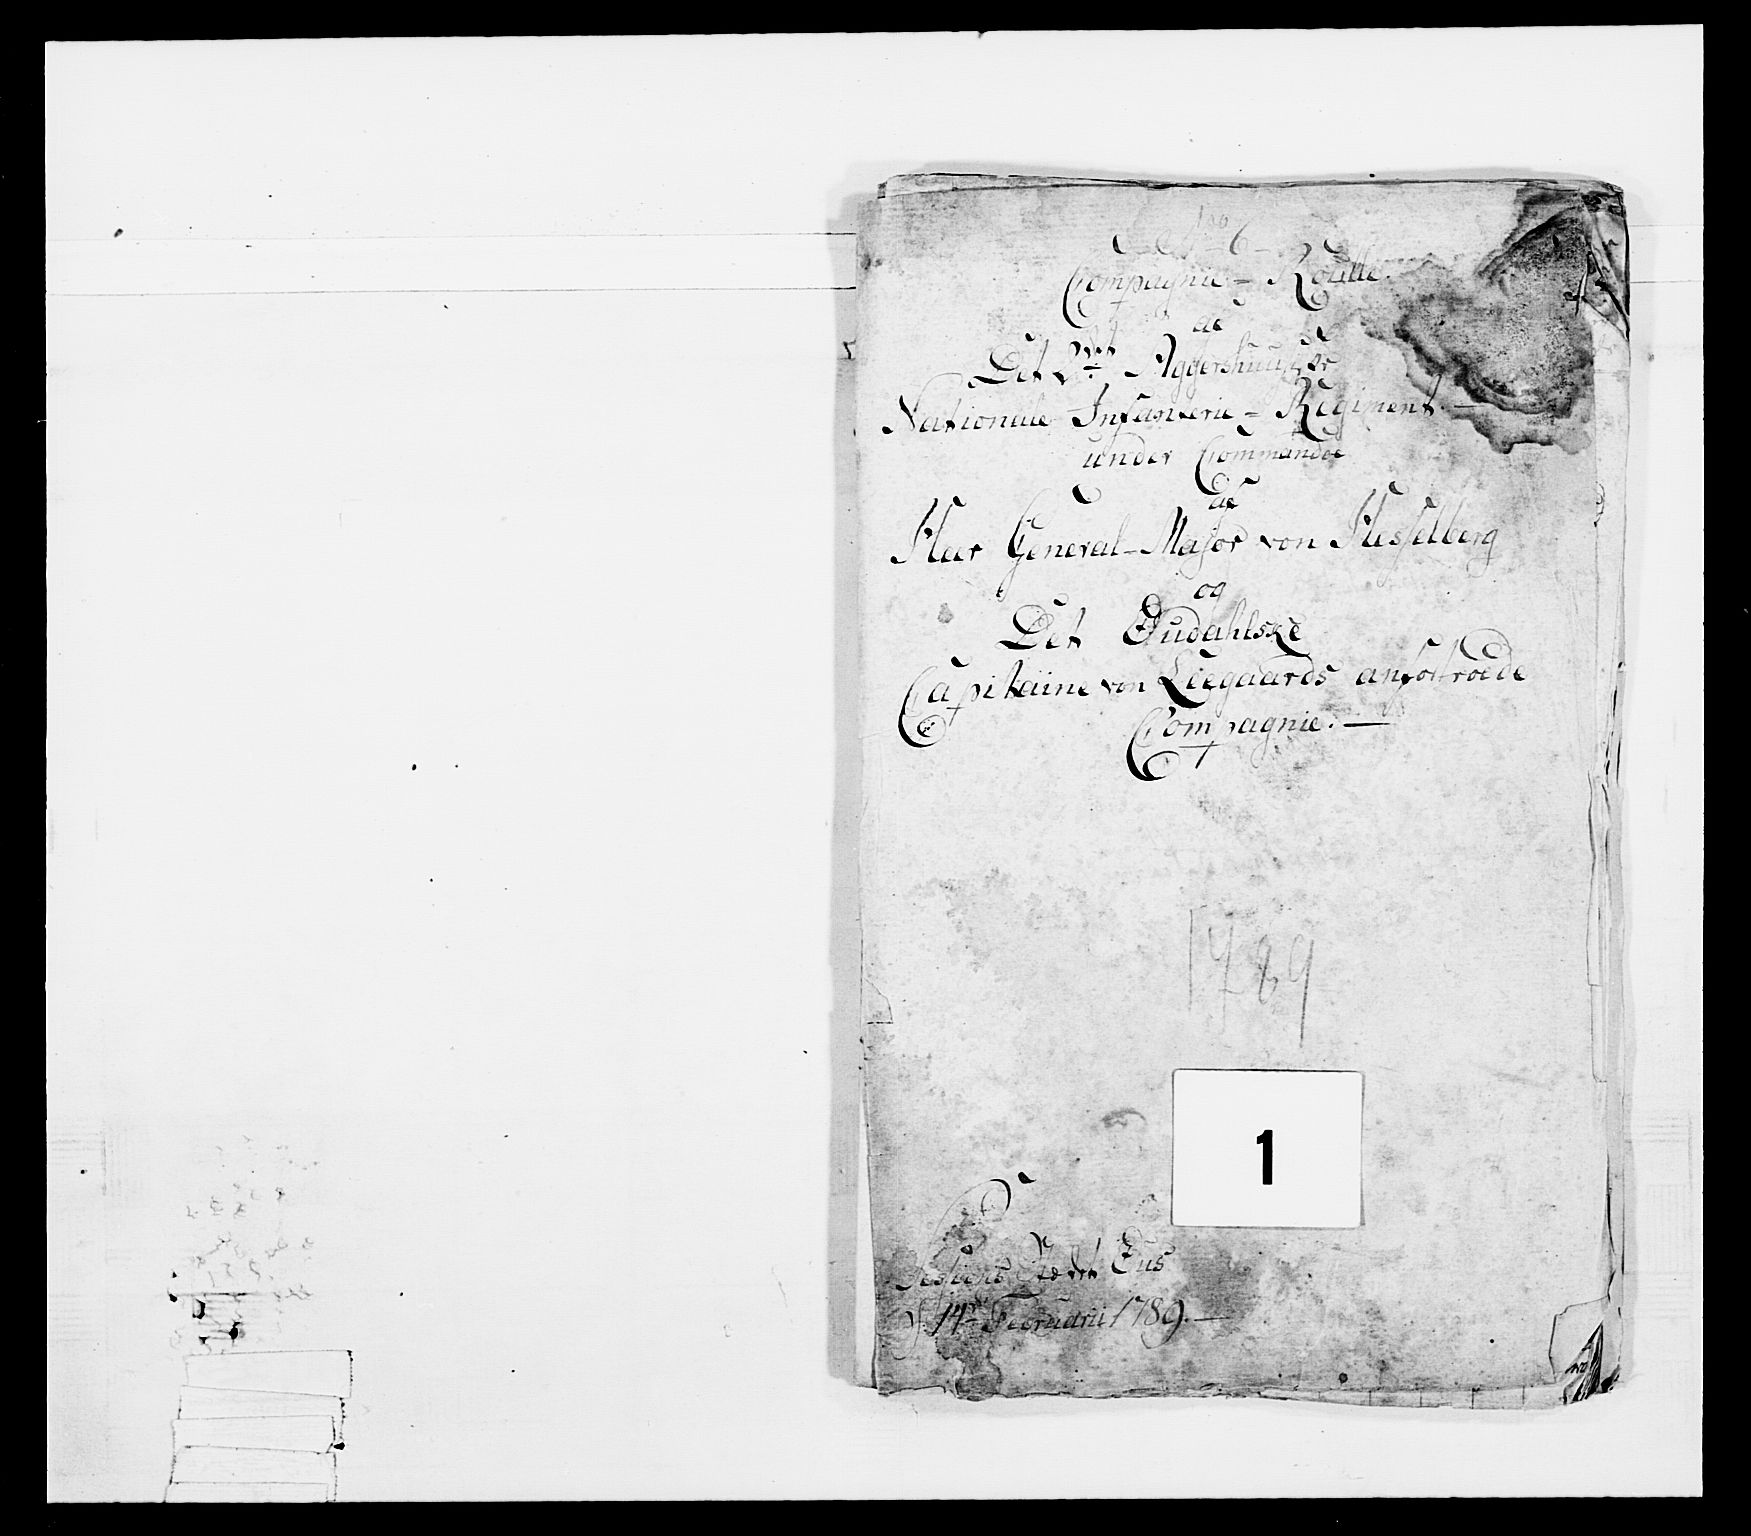 No 6
Compagnie - Roulle
af
Det 2det Aggershuusiske
Nationale Infanterie - Regiment. —
under Commandoe
af
Herr General-Major von Hesselberg
og
Det Oudahlske
Capitaine von Liegaards anfortroede
Compagnie. —
1789
1
Sessions
14de Februarii 1789. —